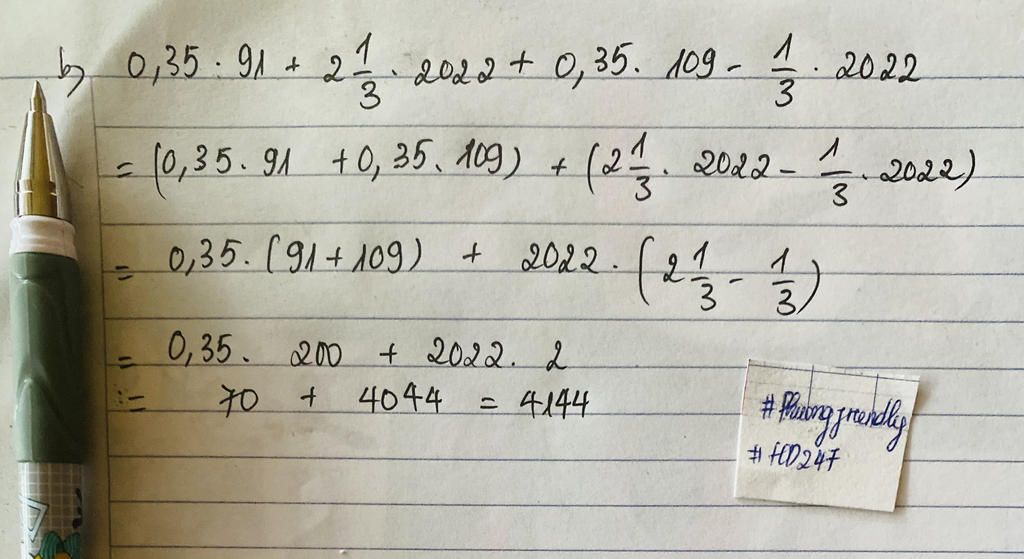 b) 0,35 . 91 + 2 1/3 . 2022 + 0,35 . 109 - 1/3 . 2022
= (0,35 . 91 + 0,35 . 109) + (2 1/3 . 2022 - 1/3 . 2022)
= 0,35 . (91 + 109) + 2022 . (2 1/3 - 1/3)
= 0,35 . 200 + 2022 . 2
= 70 + 4044 = 4144
#Phuongfriendly
#HD247